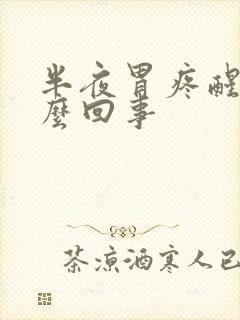 半夜胃疼醒
麼回事
茶涼酒寒人已